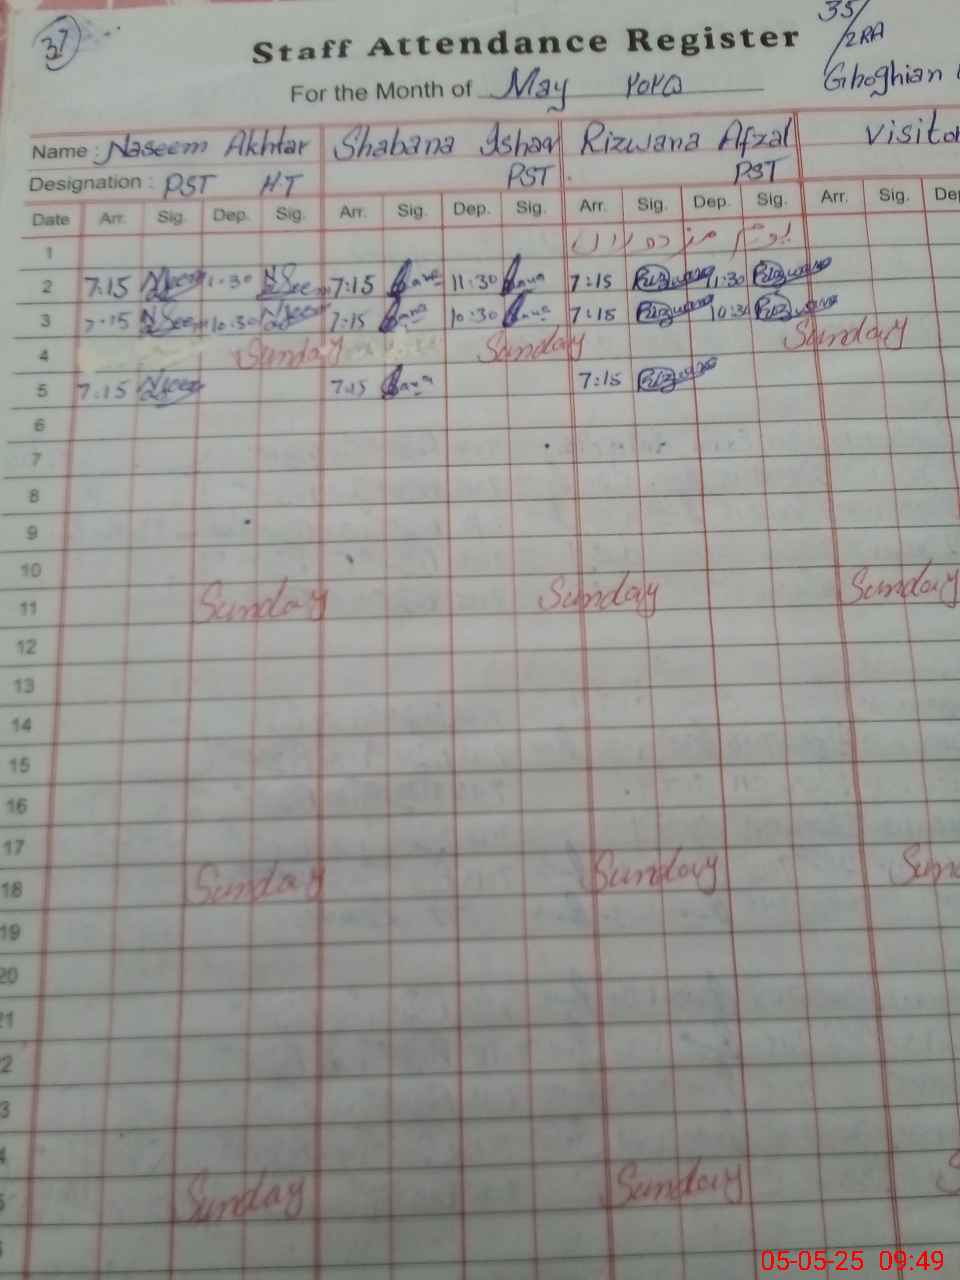 37
35/2RA
Staff Attendance Register
For the Month of May ۲۰۲۵
Ghoghian
Name : Naseem Akhtar Shabana Ishaq Rizwana Afzal Visitor
Designation : PST H.T PST PST
Date Arr. Sig. Dep. Sig. Arr. Sig. Dep. Sig. Arr. Sig. Dep. Sig. Arr. Sig. Dep
1 یوم مزدوراں
2 7:15 NSeem 1:30 NSeem 7:15 11:30 7:15 Rizwana 11:30 Rizwana
3 7:15 NSeem 10:30 NSeem 7:15 10:30 7:15 Rizwana 10:30 Rizwana
4 Sunday Sunday Sunday
5 7:15 NSeem 7:15 7:15 Rizwana
6
7
8
9
10
11 Sunday Sunday Sunday
12
13
14
15
16
17
18 Sunday Sunday Sun
19
20
21
2
3
4
5 Sunday Sunday S
05-05-25 09:49